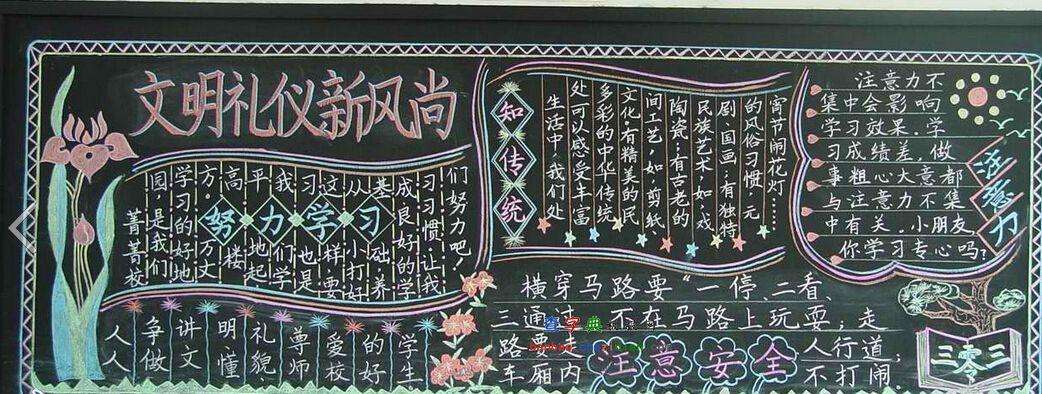 文明礼仪新风尚
努力学习
菁菁校
园,是我们
学习的好地
方。万丈
高楼
平地起
我们学
习也是
这样要
从小打好
基础,养
成良好的学
习习惯,让我
们努力吧!
人人
争做
讲文
明懂
礼貌、
尊师
爱校
的好
学生
知传统
生活中,我们处
处可以感受丰富
多彩的中华传统
文化:有精美的民
间工艺,如:剪纸
陶瓷;有古老的
民族艺术,如:戏
剧、国画;有独特
的风俗习惯:元
宵节闹花灯……
注意力
注意力不
集中会影响
学习效果,学
习成绩差,做
事粗心大意都
与注意力不集
中有关,小朋友
你学习专心吗?
横穿马路要“一停、二看、
三通过”,不在马路上玩耍,走
路要走 人行道,
车厢内 不打闹。
注意安全
三零三
查字典